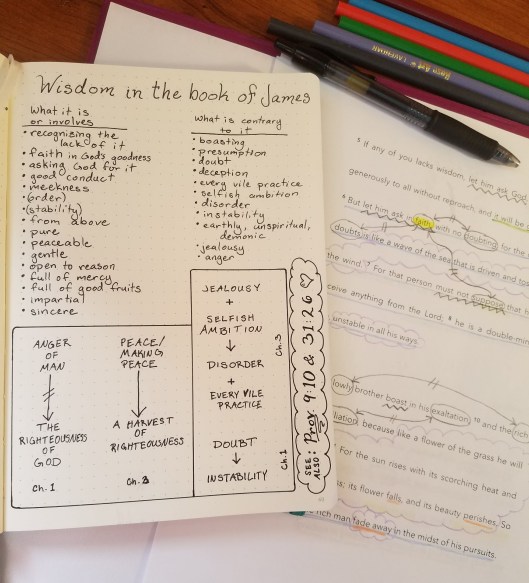 Wisdom in the book of James
What it is
or involves
• recognizing the
lack of it
• faith in God's goodness
• asking God for it
• good conduct
• meekness
• (order)
• (stability)
• from above
• pure
• peaceable
• gentle
• open to reason
• full of mercy
• full of good fruits
• impartial
• sincere
What is contrary
to it
• boasting
• presumption
• doubt
• deception
• every vile practice
• selfish ambition
• disorder
• instability
• earthly, unspiritual,
demonic
• jealousy
• anger
ANGER
OF
MAN
THE
RIGHTEOUSNESS
OF
GOD
Ch. 1
PEACE/
MAKING
PEACE
A HARVEST
OF
RIGHTEOUSNESS
Ch. 3
JEALOUSY
+
SELFISH
AMBITION
DISORDER
+
EVERY VILE
PRACTICE
Ch. 3
DOUBT
INSTABILITY
Ch. 1
SEE
ALSO: Prov. 9:10 & 31:26
5 If any of you lacks wisdom, let him ask God,
generously to all without reproach, and it will be
6 But let him ask in faith, with no doubting, for the
doubts is like a wave of the sea that is driven and
the wind. 7 For that person must not suppose that
ceive anything from the Lord; 8 he is a
unstable in all his ways.
lowly brother boast in his exaltation, 10 and the rich
because like a flower of the grass he will
For the sun rises with its scorching heat and
its flower falls, and its beauty perishes. So
rich man fade away in the midst of his pursuits.